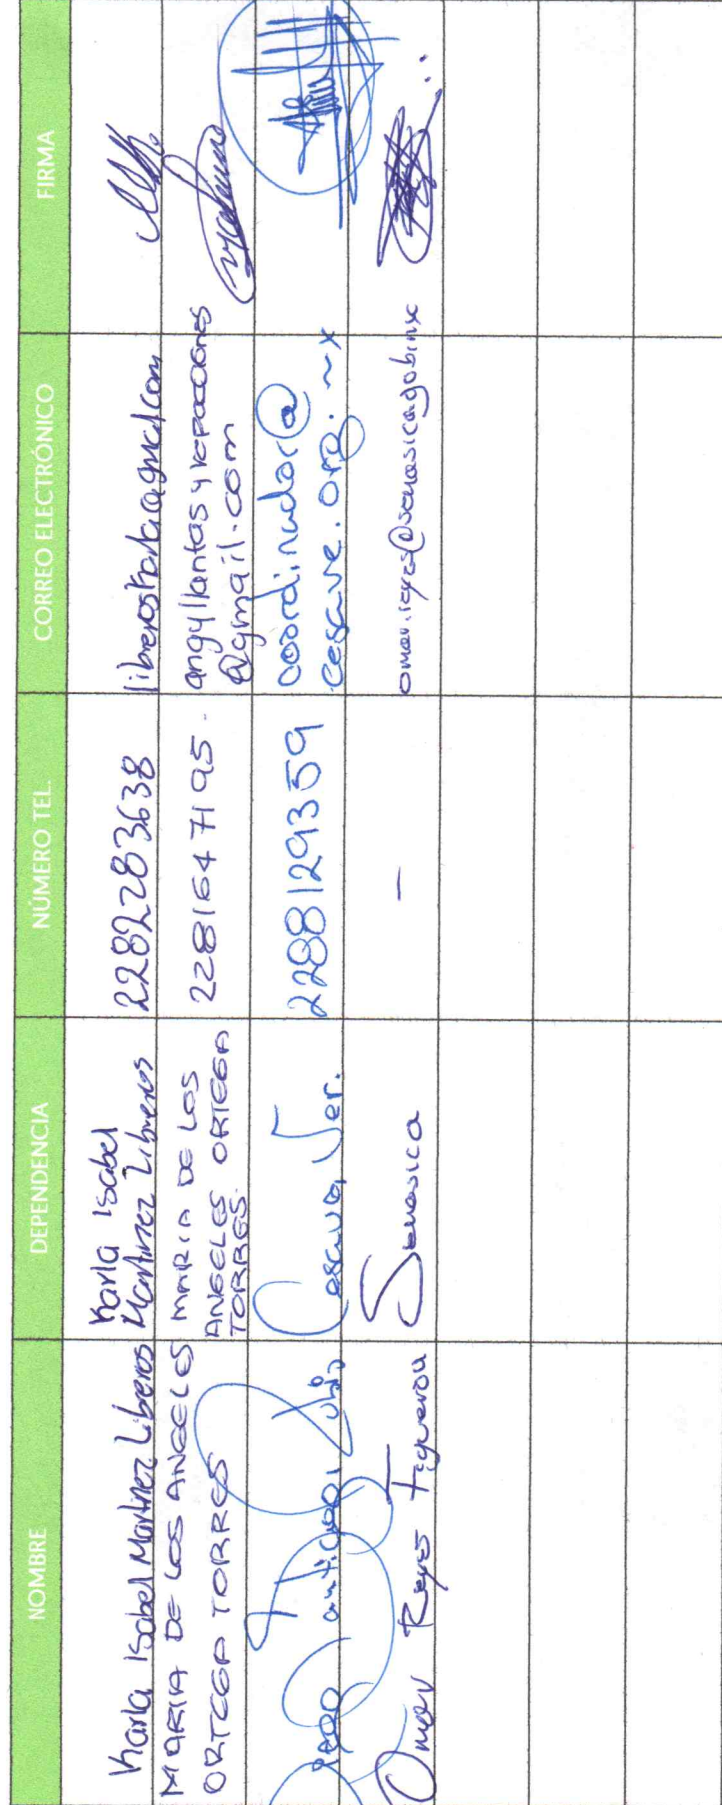 NOMBRE DEPENDENCIA NÚMERO TEL. CORREO ELECTRÓNICO FIRMA
Karla Isabel Martinez Libreros
Karla Isabel
Martinez Libreros
2282283638
MARIA DE LOS ANGELES
ORTEGA TORRES
MARIA DE LOS
ANGELES ORTEGA
TORRES.
2281647195.
angyllantasyreparaciones
@gmail.com
Cesave Ver.
2288129359
coordinador@
cesave.org.mx
Omar Reyes Figueroa
Senasica
—